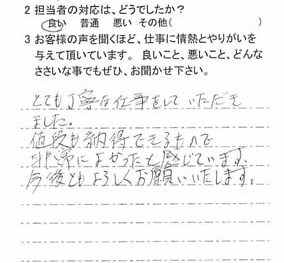 2 担当者の対応は、どうでしたか?
良い 普通 悪い その他(    )
3 お客様の声を聞くほど、仕事に情熱とやりがいを
与えて頂いています。 良いこと、悪いこと、どんな
ささいな事でもぜひ、お聞かせ下さい。
とても丁寧な仕事をしていただき
ました。
値段も納得できるもので
非常によかったと感じています。
今後ともよろしくお願いいたします。